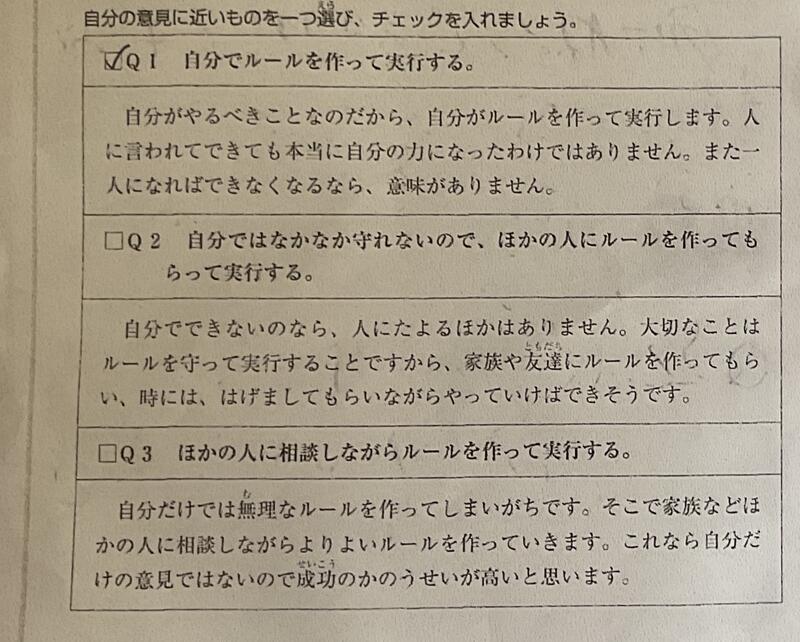 自分の意見に近いものを一つ選び、チェックを入れましょう。
☑Q1 自分でルールを作って実行する。
自分がやるべきことなのだから、自分がルールを作って実行します。人
に言われてできても本当に自分の力になったわけではありません。また一
人になればできなくなるなら、意味がありません。
□Q2 自分ではなかなか守れないので、ほかの人にルールを作っても
らって実行する。
自分でできないのなら、人にたよるほかはありません。大切なことは
ルールを守って実行することですから、家族や友達にルールを作ってもら
い、時には、はげましてもらいながらやっていけばできそうです。
□Q3 ほかの人に相談しながらルールを作って実行する。
自分だけでは無理なルールを作ってしまいがちです。そこで家族などほ
かの人に相談しながらよりよいルールを作っていきます。これなら自分だ
けの意見ではないので成功のかのうせいが高いと思います。